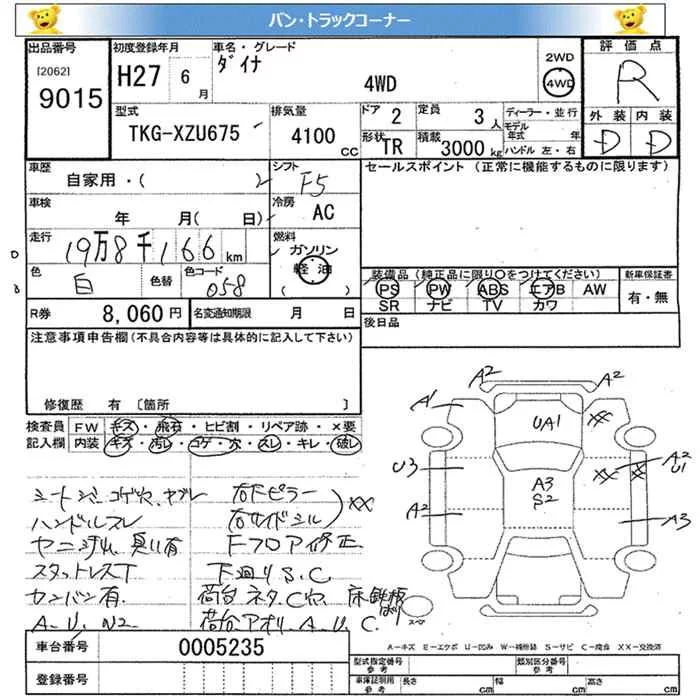 バン・トラックコーナー
出品番号 初度登録年月 車名・グレード 2WD 評価点
[2062] H27 6月 ダイナ 4WD 4WD R
9015
型式 排気量 ドア 2 定員 3人 ディーラー・並行 外装 内装
TKG-XZU675 4100cc 形状 TR 積載 3000kg モデル年式 年 D D
ハンドル 左・右
車歴 シフト セールスポイント (正常に機能するものに限ります)
自家用・( ) F5
車検 年 月( 日) 冷房 AC
走行 19万8千166km 燃料 ガソリン
軽油
( )
色 白 色替 色コード 058
装備品 (純正品に限り○をつけてください) 新車保証書
PS PW ABS エアB AW 有・無
SR ナビ TV カワ
R券 8,060円 名変通知期限 月 日 後日品
注意事項申告欄(不具合内容等は具体的に記入して下さい)
修復歴 有 〔箇所 〕
検査員 FW キズ・飛石・ヒビ割・リペア跡・×要
記入欄 内装 キズ・汚レ・コゲ・穴・スレ・キレ・破レ
シートシミ、コゲ穴、ヤブレ 右Fピラー
ハンドルスレ 右サイドシル XX
ヤニ 臭い有 Fフロア修正
スタットレスT 下廻りS.C
カンバン有. 荷台 C穴. 床鉄板ばり
A.U. 荷台アオリ A.U.C.
A1 A2 A2
XX
UA1
U3 A3 S2 XX A2 U1
A2 A3
スペア
A-キズ E-エクボ U-凹み W-補修跡 S-サビ C-腐食 XX-交換済
車台番号 0005235
登録番号
型式指定番号 参考 類別区分番号 参考
車庫証明用 参考 長さ cm 幅 cm 高さ cm